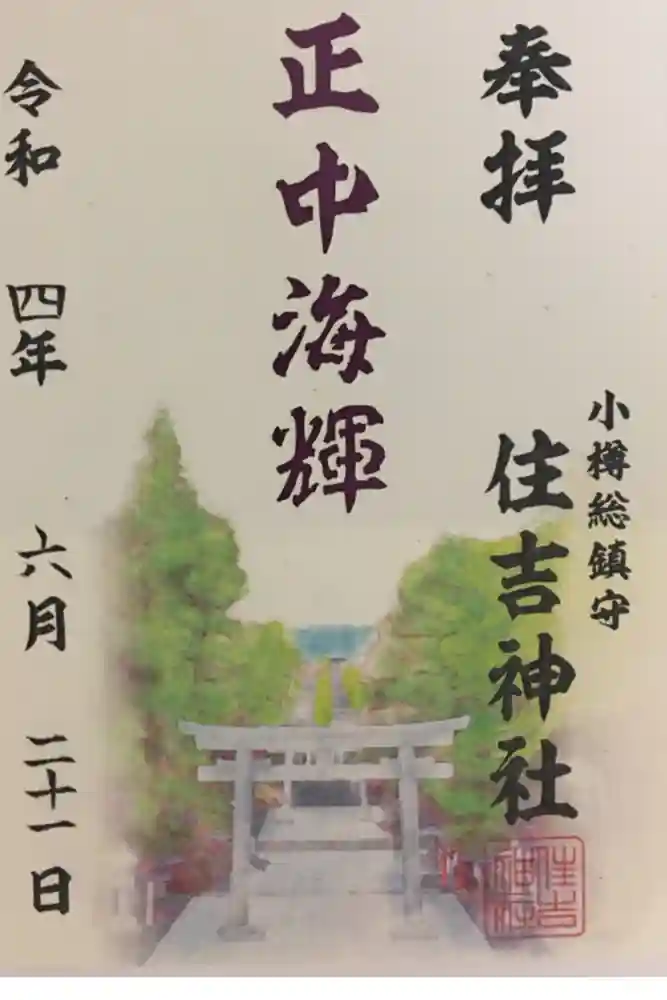 奉拝
小樽総鎮守
住吉神社
正中海輝
令和 四年 六月 二十一日
住吉
神社